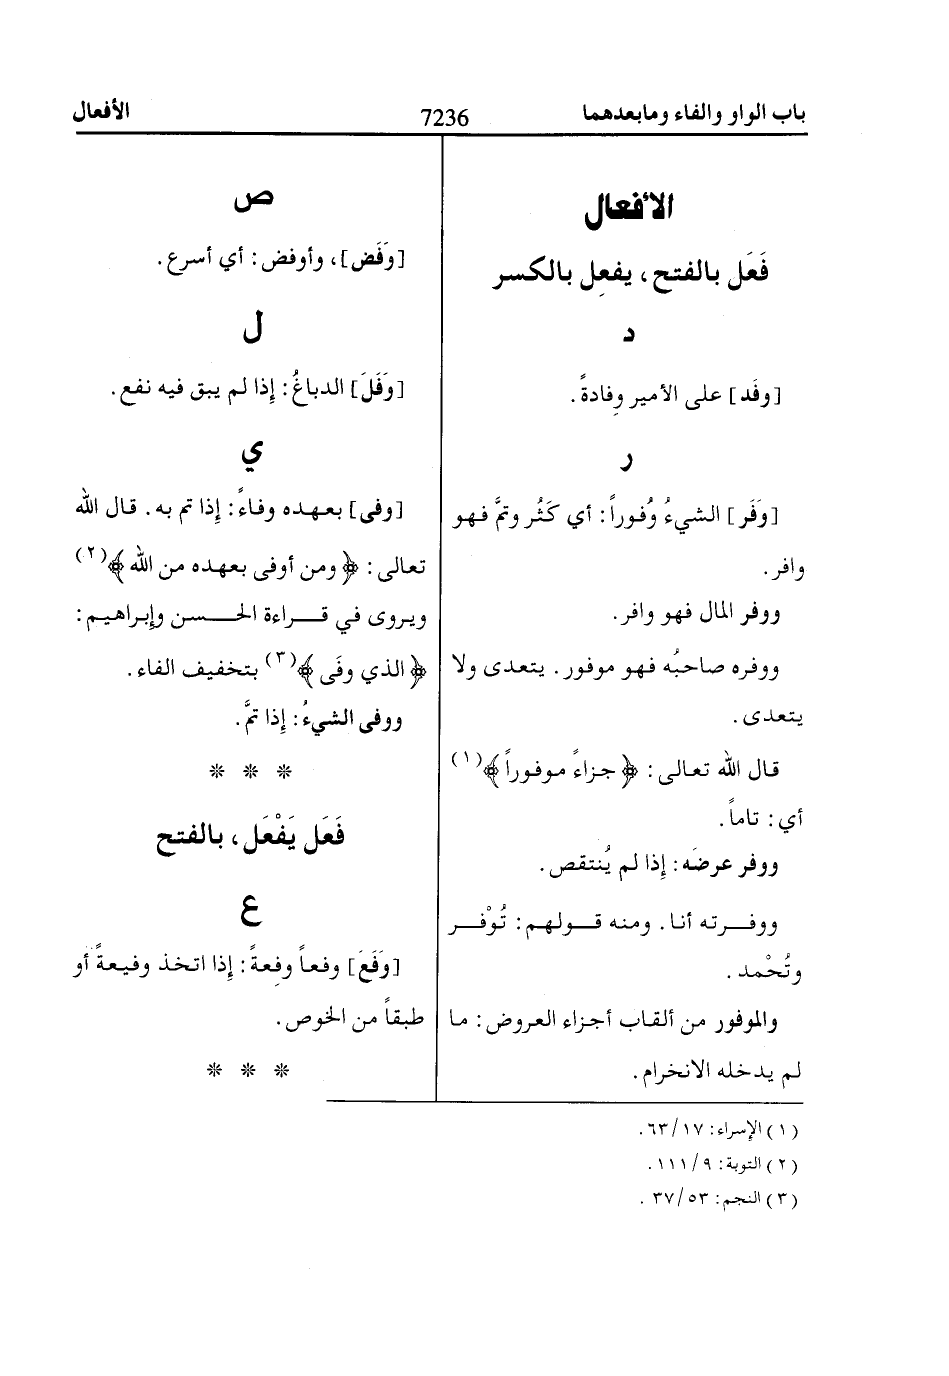 باب الواو والفاء ومابعدهما
7236
الأفعال
الأفعال
فَعَل بالفتح، يفعِل بالكسر
د
[وفَد] على الأمير وِفادةً.
ر
[وَفَر] الشيءُ وُفوراً: أي كَثُر وتمَّ فهو
وافر.
ووفر المال فهو وافر.
ووفره صاحبُه فهو موفور. يتعدى ولا
يتعدى.
قال الله تعالى: ﴿جزاءً موفوراً﴾(١)
أي: تاماً.
ووفر عرضَه: إذا لم يُنتقص.
ووفرته أنا. ومنه قولهم: تُوْفر
وتُحْمد.
والموفور من ألقاب أجزاء العروض: ما
لم يدخله الانخرام.
ص
[وَفَض]، وأوفض: أي أسرع.
ل
[وَفَلَ] الدباغُ: إذا لم يبق فيه نفع.
ي
[وفى] بعهده وفاءً: إذا تم به. قال الله
تعالى: ﴿ومن أوفى بعهده من الله﴾(٢)
ويروى في قراءة الحسن وإبراهيم:
﴿الذي وفَى﴾(٣) بتخفيف الفاء.
ووفى الشيءُ: إذا تمَّ.
* * *
فَعَل يَفْعَل، بالفتح
ع
[وَفَعَ] وفعاً وفِعةً: إذا اتخذ وفيعةً أو
طبقاً من الخوص.
* * *
(١) الإسراء: ١٧/ ٦٣.
(٢) التوبة: ٩/ ١١١.
(٣) النجم: ٥٣/ ٣٧.